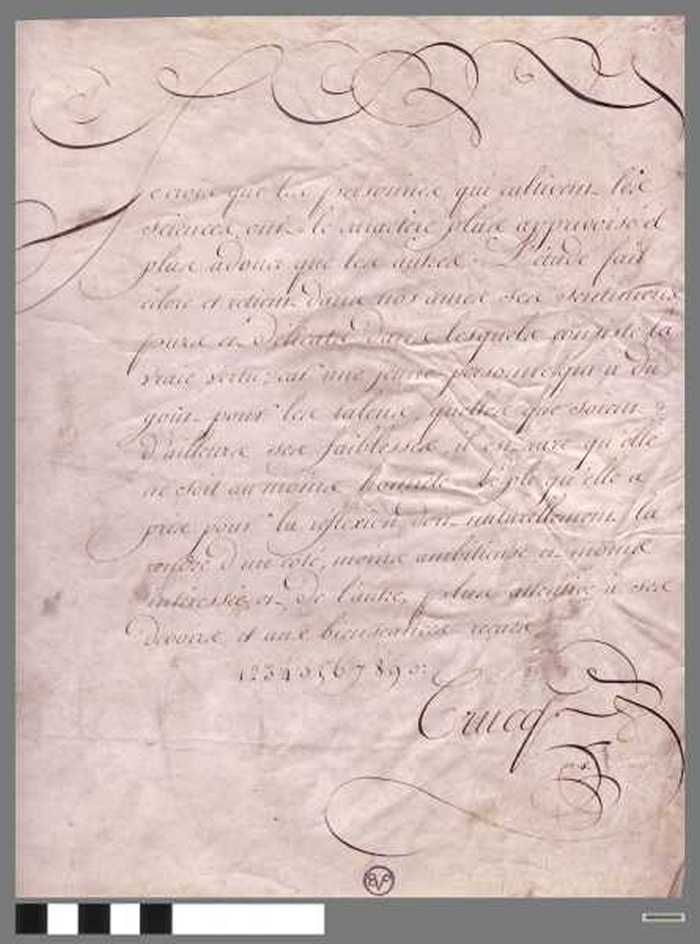 Je crois que les personnes qui cultivent les
sciences, ont le caractere plus apprivoisé et
plus adouci que les autres. L'étude fait
éclore et retient dans nos ames ses sentimens
purs et délicats dans lesquels consiste la
vraie vertu; car une jeune personne qui a du
goût pour les talens, quelles que soient
d'ailleurs ses faiblesses, il est rare qu'elle
ne soit au moins honnete. le pli qu'elle a
pris pour la réflexion doit naturellement la
rendre d'un coté, moins ambitieuse et moins
intéressée, et de l'autre, plus attentive à ses
devoirs et aux bienséances reçues
1 2 3 4 5 6 7 8 9 0
Crucq